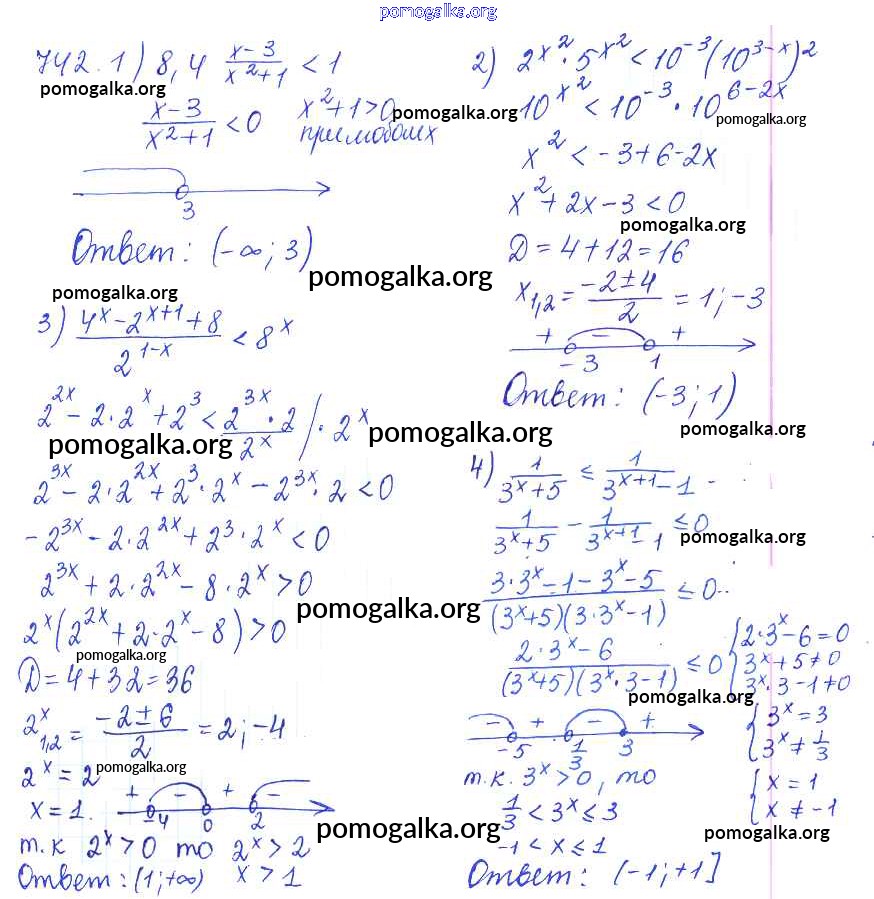 pomogalka.org
742. 1) 8,4^{\frac{x-3}{x^2+1}} < 1
pomogalka.org
\frac{x-3}{x^2+1} < 0   x^2+1>0
при любых
Ответ: (-∞; 3)
3
pomogalka.org
2) 2^{x^2} · 5^{x^2} < 10^{-3}(10^{3-x})^2
pomogalka.org
10^{x^2} < 10^{-3} · 10^{6-2x}
pomogalka.org
x^2 < -3+6-2x
x^2+2x-3<0
pomogalka.org
D=4+12=16
x_{1,2} = \frac{-2±4}{2} = 1; -3
+ - +
-3 1
Ответ: (-3; 1)
pomogalka.org
pomogalka.org
3) \frac{4^x-2^{x+1}+8}{2^{1-x}} < 8^x
2^{2x} - 2·2^x + 2^3 < \frac{2^{3x}·2}{2^x} / · 2^x
pomogalka.org
pomogalka.org
2^{3x} - 2·2^{2x} + 2^3·2^x - 2^{3x}·2 < 0
-2^{3x} - 2·2^{2x} + 2^3·2^x < 0
2^{3x} + 2·2^{2x} - 8·2^x > 0
pomogalka.org
2^x(2^{2x} + 2·2^x - 8) > 0
pomogalka.org
D=4+32=36
2^x_{1,2} = \frac{-2±6}{2} = 2; -4
2^x = 2
pomogalka.org
x=1.
+ - + -
-4 0 2
т.к 2^x>0 то 2^x>2
pomogalka.org
Ответ: (1; +∞)   x>1
4) \frac{1}{3^x+5} ≤ \frac{1}{3^{x+1}-1}
\frac{1}{3^x+5} - \frac{1}{3^{x+1}-1} ≤ 0
pomogalka.org
\frac{3·3^x-1-3^x-5}{(3^x+5)(3·3^x-1)} ≤ 0
\frac{2·3^x-6}{(3^x+5)(3^x·3-1)} ≤ 0
pomogalka.org
{2·3^x-6=0
3^x+5≠0
3^x·3-1≠0
{3^x=3
3^x≠\frac{1}{3}
{x=1
x≠-1
- + - +
-5 \frac{1}{3} 3
т.к. 3^x>0, то
\frac{1}{3}<3^x≤3
-1<x≤1
pomogalka.org
Ответ: (-1; +1]